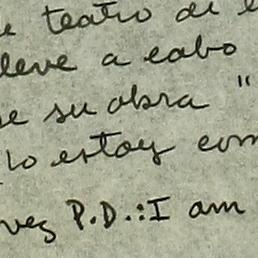 teatro de
lleve a cabo
su obra "
lo estoy com
vez P.D.:I am